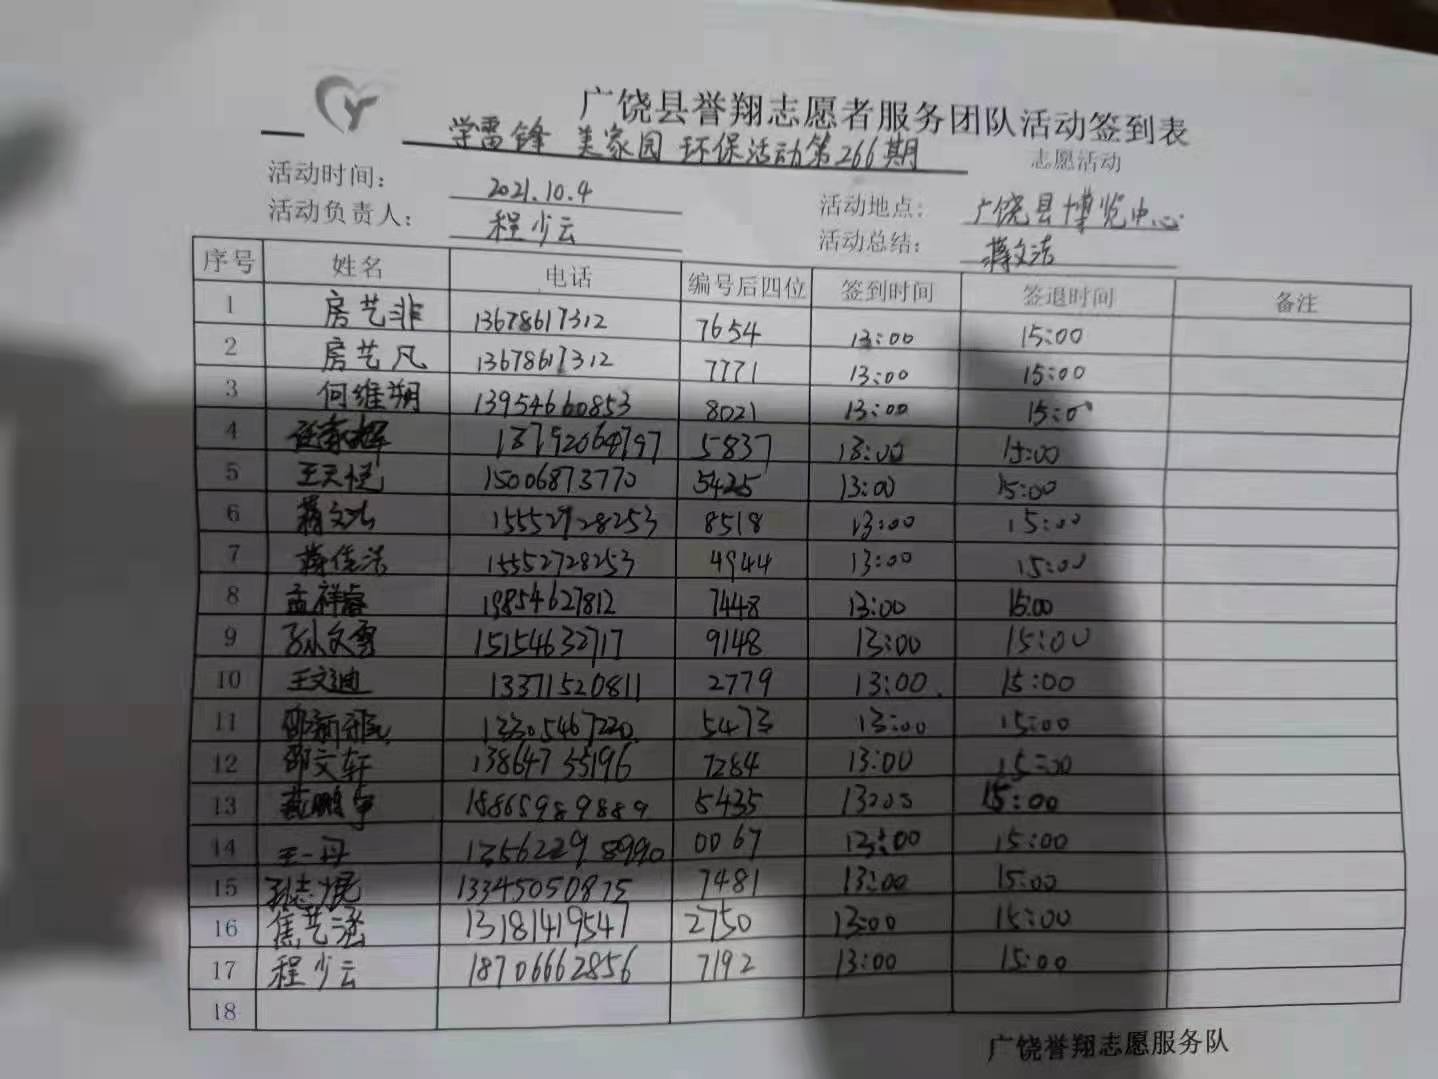 广饶县誉翔志愿者服务团队活动签到表
学雷锋 美家园 环保活动第266期 志愿活动
活动时间： 2021.10.4 活动地点： 广饶县博览中心
活动负责人： 程少云 活动总结： 蒋文洁
序号 姓名 电话 编号后四位 签到时间 签退时间 备注
1 房艺非 13678617312 7654 13:00 15:00
2 房艺凡 13678617312 7771 13:00 15:00
3 何维朔 13954660853 8021 13:00 15:00
4 13792064797 5837 13:00 15:00
5 王天悦 15006873770 5425 13:00 15:00
6 蒋文洁 15552728253 8518 13:00 15:00
7 蒋佳洁 15552728253 4944 13:00 15:00
8 孟祥睿 19854627812 7448 13:00 15:00
9 孙文雪 15154632717 9148 13:00 15:00
10 王文迪 13371520811 2779 13:00 15:00
11 5473 13:00 15:00
12 邵文轩 13864735196 7284 13:00 15:00
13 18865989889 5435 13:00 15:00
14 王一丹 0067 13:00 15:00
15 13345050875 7481 13:00 15:00
16 焦艺涵 13181419547 2750 13:00 15:00
17 程少云 18706662856 7192 13:00 15:00
18
广饶誉翔志愿服务队